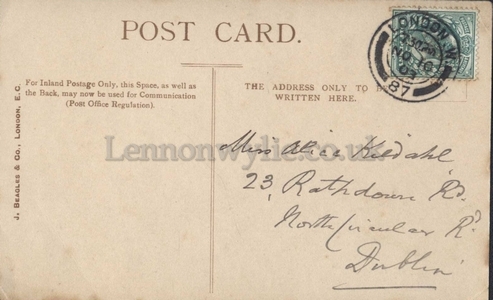 POST CARD.
J. BEAGLES & CO., LONDON, E.C.
For Inland Postage Only, this Space, as well as
the Back, may now be used for Communication
(Post Office Regulation).
THE ADDRESS ONLY TO
WRITTEN HERE.
LONDON. W.
87
Lennonwylie.co.uk
Miss Alice Kildahl
23, Rathdown Rd.
North Circular Rd
Dublin